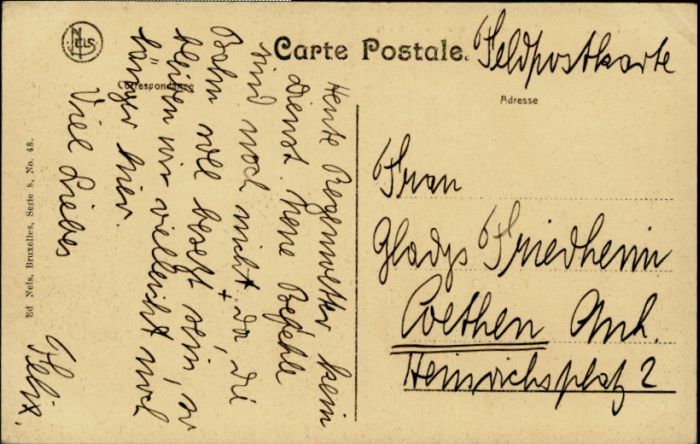 NELS
Carte Postale.
Feldpostkarte
Correspondance
Adresse
Heute Regenwetter kein
Dienst. Neue Befehle
sind noch nicht da, die
Bahn soll besetzt sein, so
bleiben wir vielleicht noch
länger hier.
Viel Liebes
Felix.
Frau
Gladys Friedheim
Coethen Anh.
Heinrichsplatz 2
Ed Nels, Bruxelles, Serie 8, No. 48.